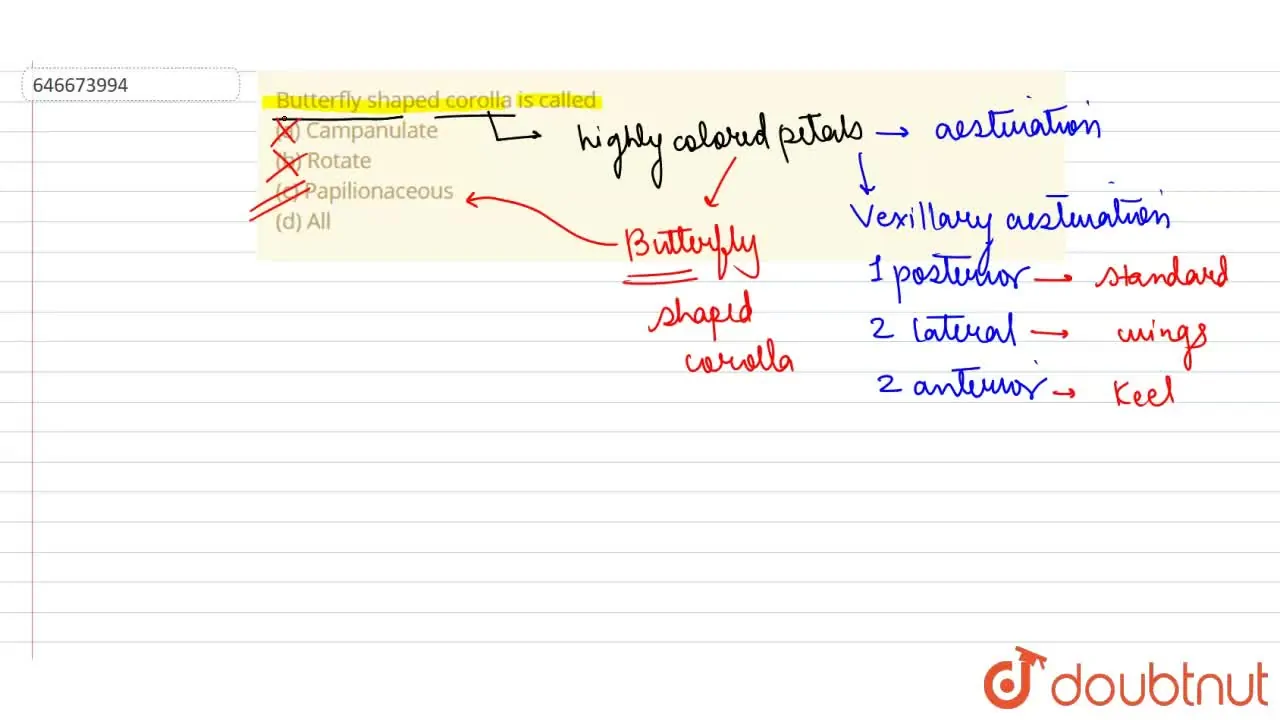 646673994
Butterfly shaped corolla is called
(a) Campanulate
(b) Rotate
(c) Papilionaceous
(d) All
highly colored petals → aestivation
Vexillary aestivation
Butterfly
shaped
corolla
1 posterior → standard
2 lateral → wings
2 anterior → Keel
doubtnut